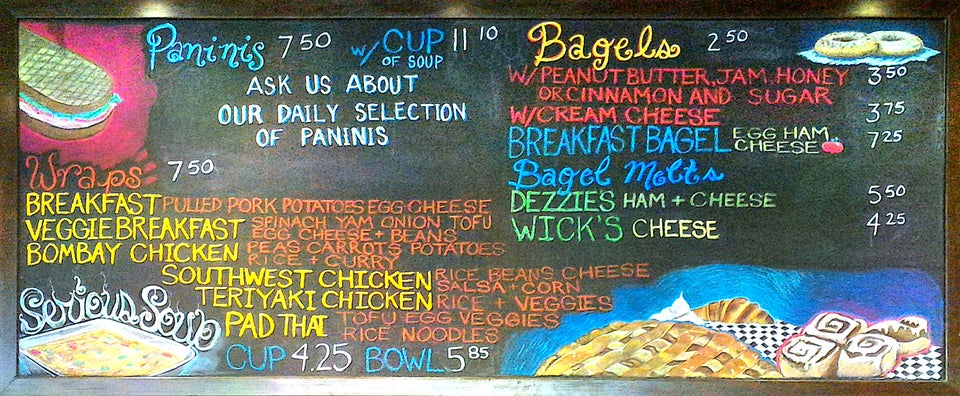 Paninis 7 50 w/ CUP OF SOUP 11 10
ASK US ABOUT
OUR DAILY SELECTION
OF PANINIS
Wraps 7 50
BREAKFAST PULLED PORK POTATOES EGG CHEESE
VEGGIE BREAKFAST SPINACH YAM ONION TOFU
EGG CHEESE + BEANS
BOMBAY CHICKEN PEAS CARROTS POTATOES
RICE + CURRY
SOUTHWEST CHICKEN RICE BEANS CHEESE
SALSA + CORN
TERIYAKI CHICKEN RICE + VEGGIES
PAD THAI TOFU EGG VEGGIES
RICE NOODLES
Serious Soup
CUP 4.25 BOWL 5 85
Bagels 2 50
W/ PEANUT BUTTER, JAM, HONEY 3 50
OR CINNAMON AND SUGAR
W/ CREAM CHEESE 3 75
BREAKFAST BAGEL EGG HAM CHEESE 7 25
Bagel Melts
DEZZIE'S HAM + CHEESE 5 50
WICK'S CHEESE 4 25